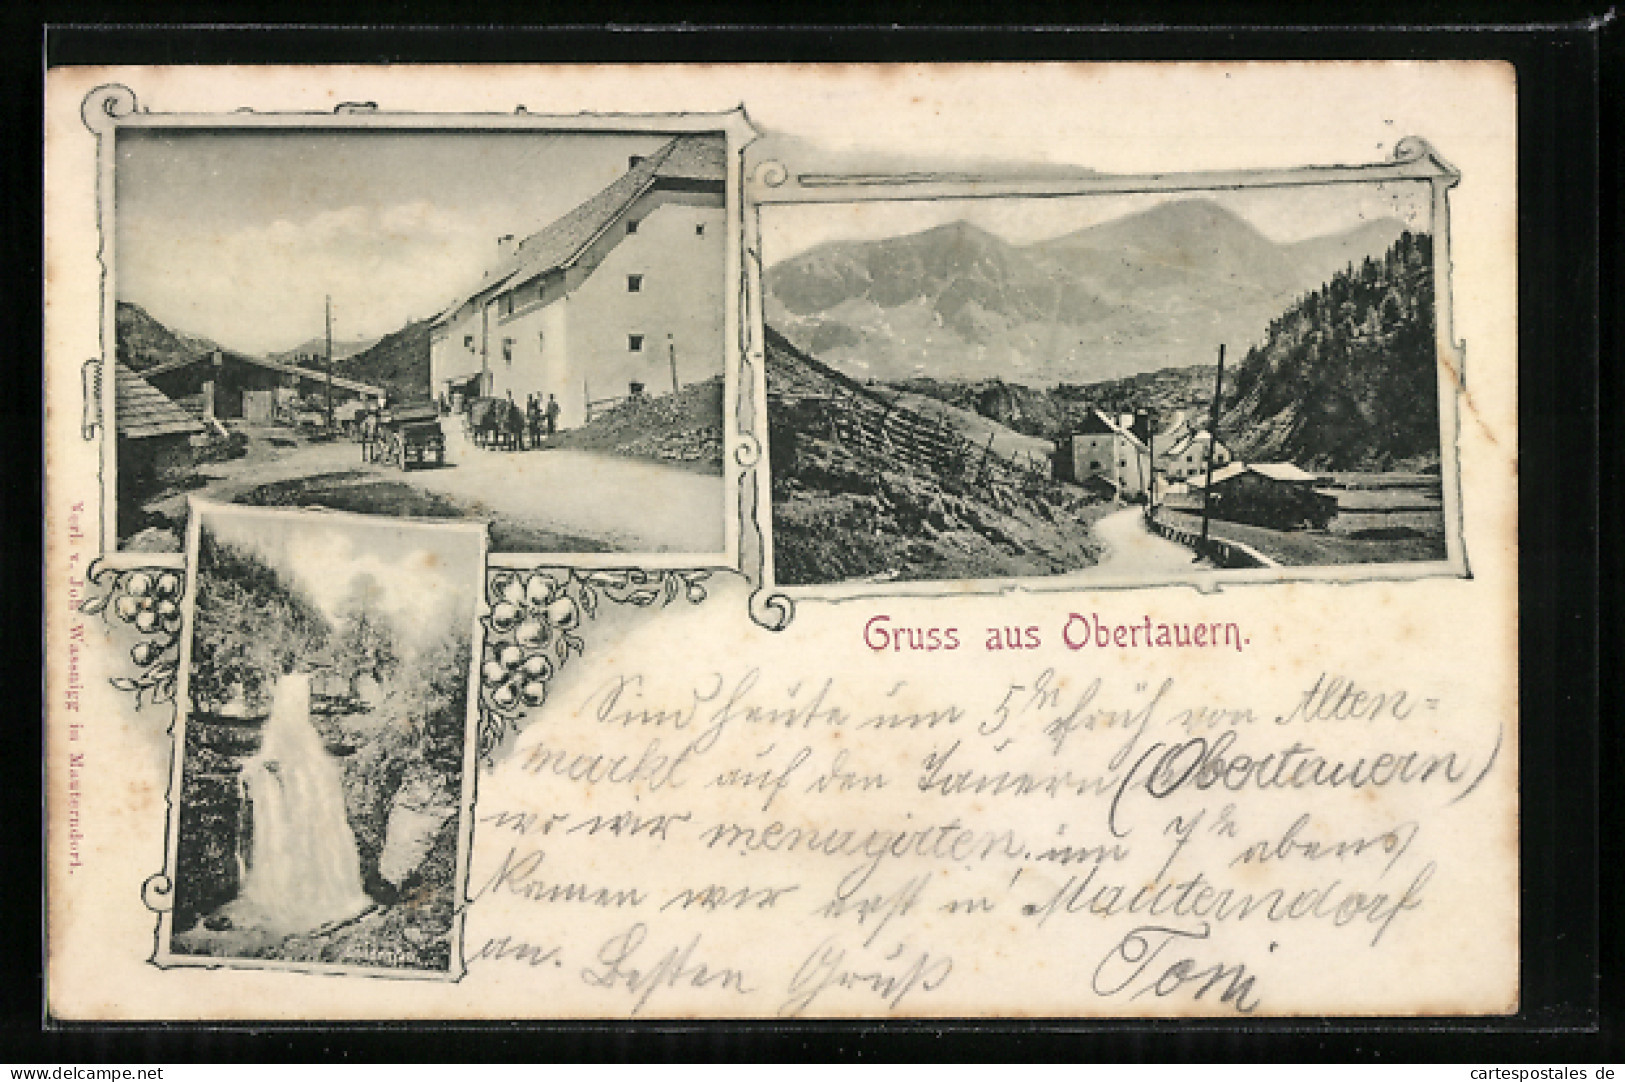 Gruss aus Obertauern.
Sind heute um 5h früh von Alten=
markt auf den Tauern (Obertauern)
wo wir menagirten, um 7h abens
kamen wir erst in Mauterndorf
an. Besten Gruß Toni
Verl. v. Joh. Wassnigg in Mauterndorf.
cartespostales.de
cartespostales de